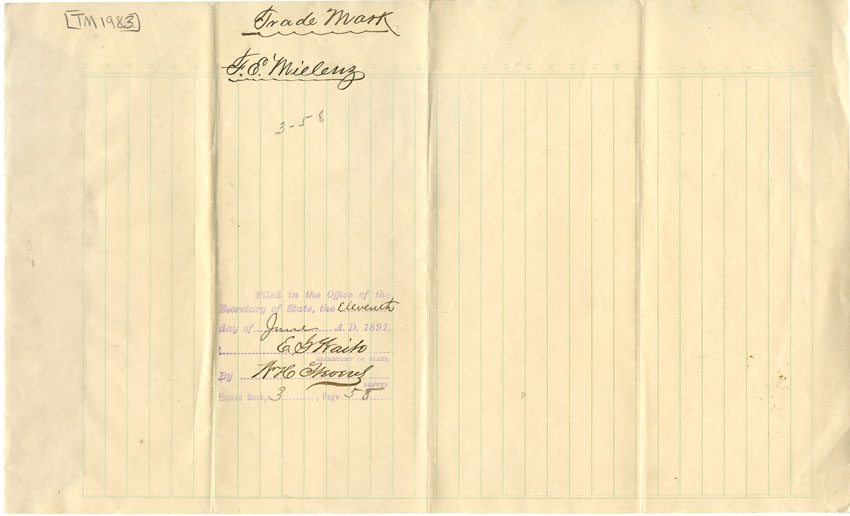 [TM 1983]
Trade Mark
F. E. Mielenz
3-58
Filed in the Office of the
Secretary of State, the Eleventh
day of June A. D. 1891
E. G. Waite
SECRETARY OF STATE
By W H
DEPUTY
Record Book, 3, Page 58